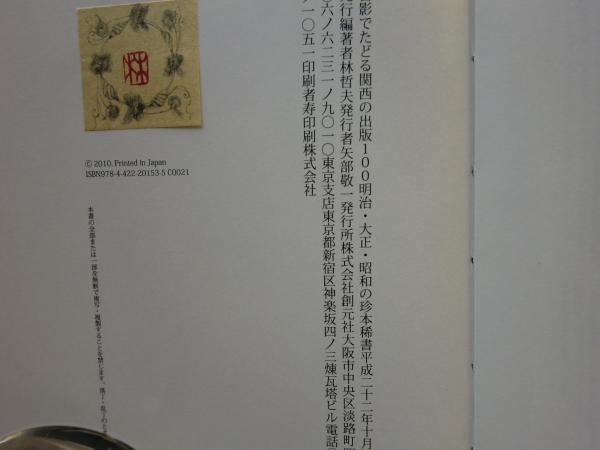 書影でたどる関西の出版100明治・大正・昭和の珍本稀書平成二十二年十月
行編著者林哲夫発行者矢部敬一発行所株式会社創元社大阪市中央区淡路町
六ノ六二三一ノ九〇一〇東京支店東京都新宿区神楽坂四ノ三煉瓦塔ビル電話
一〇五一印刷者寿印刷株式会社
林
© 2010. Printed in Japan
ISBN978-4-422-20153-5 C0021
本書の全部または一部を無断で複写・複製することを禁じます。落丁・乱丁のと